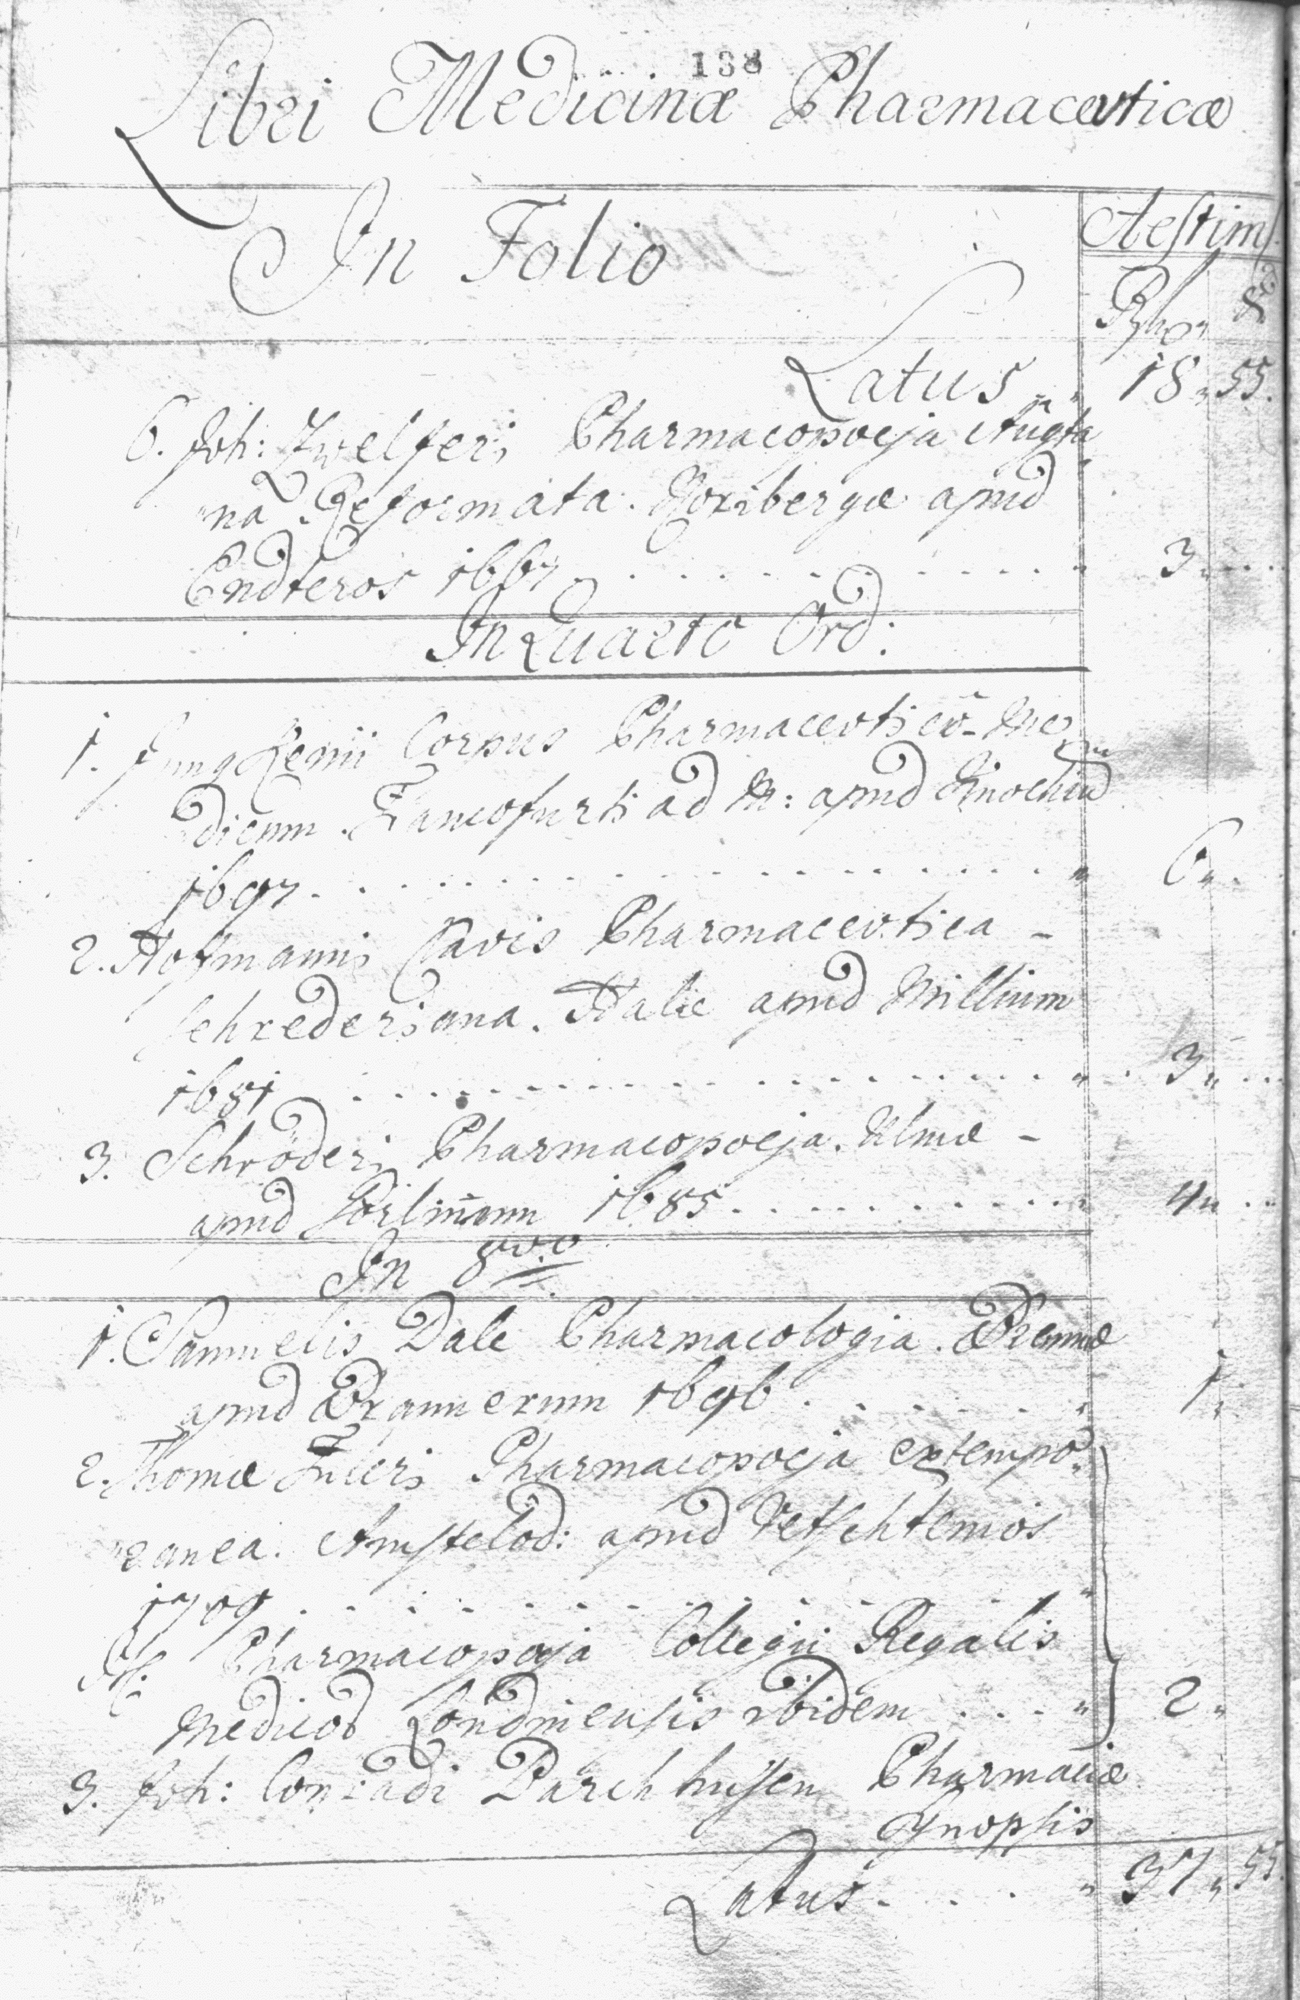 138
Libri Medicinæ Pharmaceuticæ
In Folio
Aestim:
Rhn 8d
Latus 18 55.
6. Joh: Zwelferi Pharmacopoeja Augta
na Reformata. Noribergæ apud
Endteros 1667 . . . . . . . . . . . 3 . . .
In Quarto Ord:
1. Jungkenii Corpus Pharmaceuticū- Me
dicum. Francofurti ad M: apud Knochiū
1697. . . . . . . . . . . . . . . . . 6
2. Hofmanni Clavis Pharmaceutica -
Schrederiana. Halæ apud Millium
1681 . . . . . . . . . . . . . . . . 3 . . .
3. Schröderi Pharmacopoeja. Ulmæ -
apud Görlin̄ann 1685. . . . . . . . . 4 . .
In 8v.o
1. Samuelis Dale Pharmacologia. Bremæ
apud Braunerum 1696 . . . . . . . 1
2. Thomæ Fuleri Pharmacopoeja extempo
ranea. Amstelod: apud
1709 . . . . . . . . . . . . .
It: Pharmacopoeja Collegii Regalis
Medicor Londinensis ibidem . . . 2
3. Joh: Conradi Barchhusen Pharmaciæ
Synopsis
Latus. . . . . 37 55.